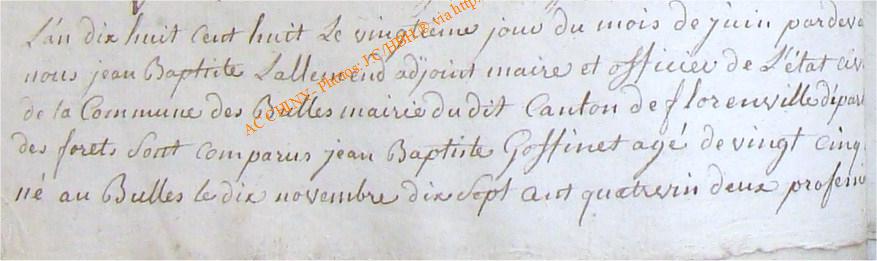 L'an dix huit cent huit Le vingtieme jour du mois de juin pardeva
nous jean Baptiste Lallemend adjoint maire et officier de L'état civ
de la Commune des Bulles mairie du dit Canton de florenville dépar
des forets Sont comparus jean Baptiste Goffinet agé de vingt cinq
né au Bulles le dix novembre dix Sept ant quatrevin deux profesi
ACCHLNX - Photos: J C/HBH © via http